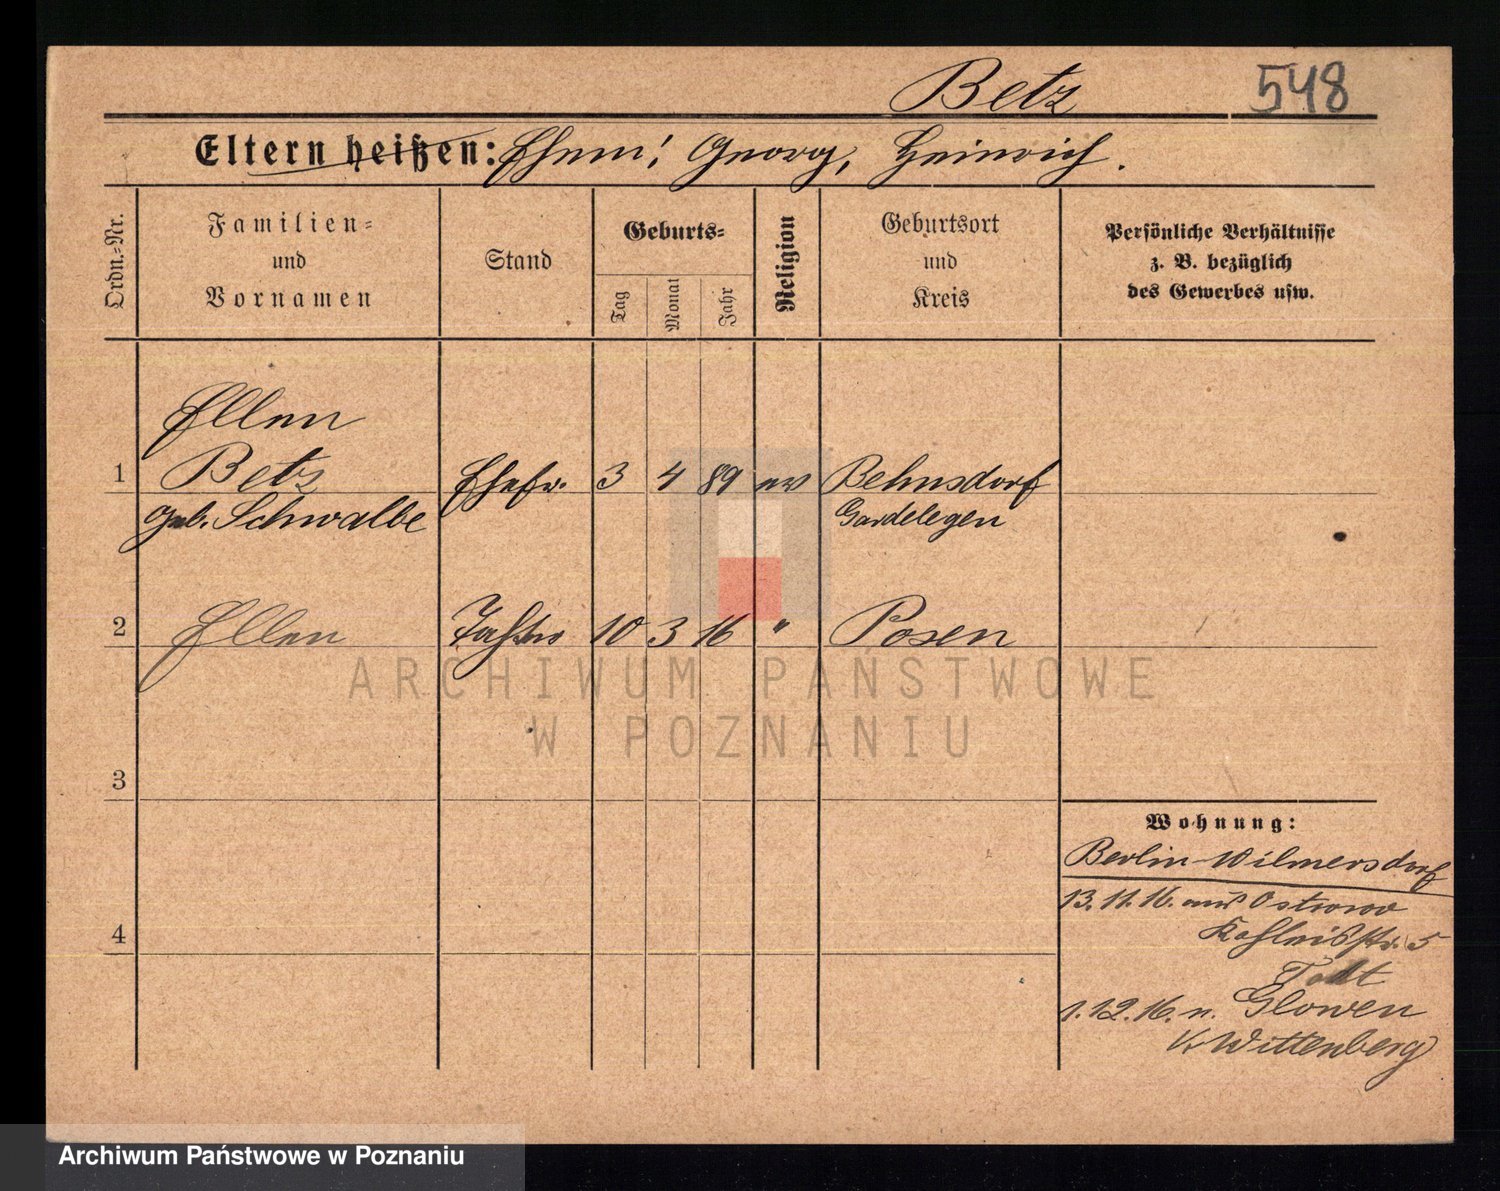 Betz 548
Eltern heißen: Ehem! Georg, Heinrich.
Ordn.-Nr.
Familien-
und
Vornamen
Stand
Geburts-
Tag
Monat
Jahr
Religion
Geburtsort
und
Kreis
Persönliche Verhältnisse
z. B. bezüglich
des Gewerbes usw.
Ellen
1 Betz Ehefr. 3 4 89 ev Behnsdorf
geb. Schwalbe Gardelegen
2 Ellen Tochter 10 3 16 " Posen
3
Wohnung:
Berlin-Wilmersdorf
13.11.16. aus Ostrowo
4
Todt
1.12.16. n. Glowen
K Wittenberg
ARCHIWUM PAŃSTWOWE
W POZNANIU
Archiwum Państwowe w Poznaniu